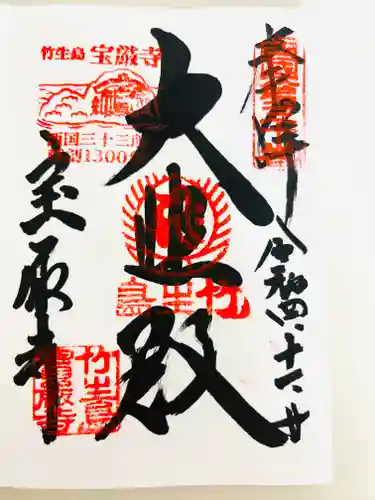 奉拝
令和四
大悲殿
宝厳寺
竹生島 宝厳寺
西国三十三所
草創1300年
竹生島
竹生島
寶厳寺